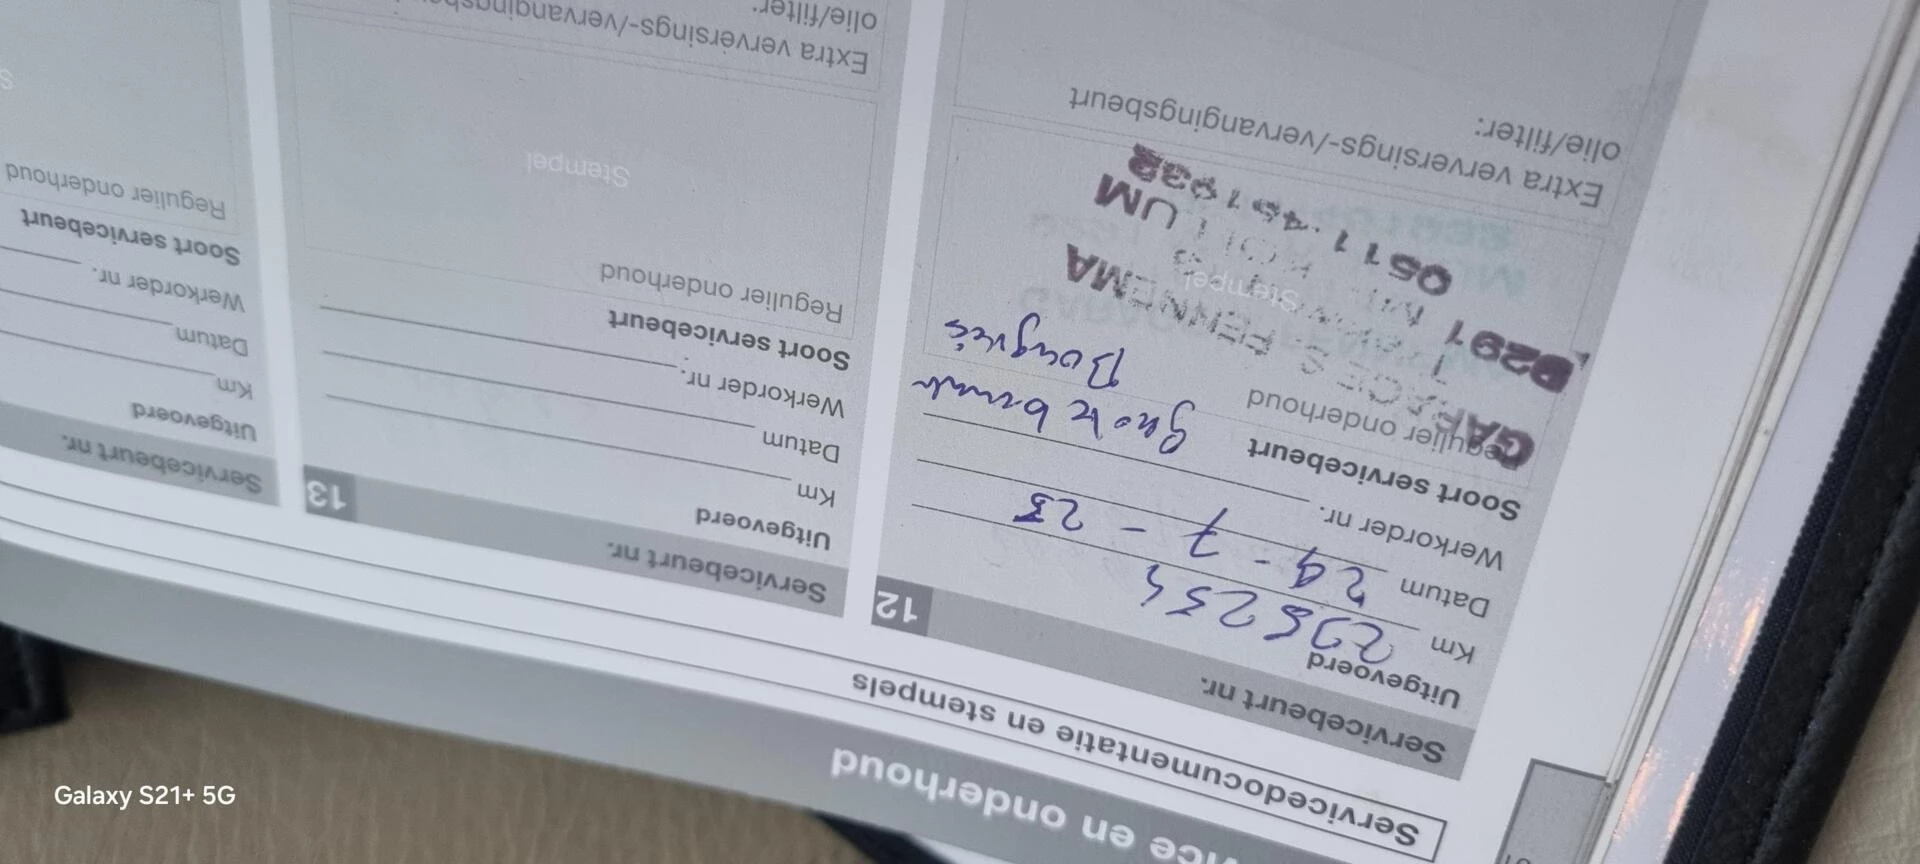 Service en onderhoud
Servicedocumentatie en stempels
Servicebeurt nr. 12
Uitgevoerd
Km
Datum 29 - 7 - 23
Werkorder nr.
Soort servicebeurt grote beurt
Regulier onderhoud Bougies
GARAGE S FENNEMA
Stempel
9291 KOLLUM
0511.451932
Extra verversings-/vervangingsbeurt
olie/filter:
Servicebeurt nr. 13
Uitgevoerd
Km
Datum
Werkorder nr.
Soort servicebeurt
Regulier onderhoud
Stempel
Extra verversings-/vervangingsbeurt
olie/filter:
Servicebeurt nr.
Uitgevoerd
Km
Datum
Werkorder nr.
Soort servicebeurt
Regulier onderhoud
Galaxy S21+ 5G